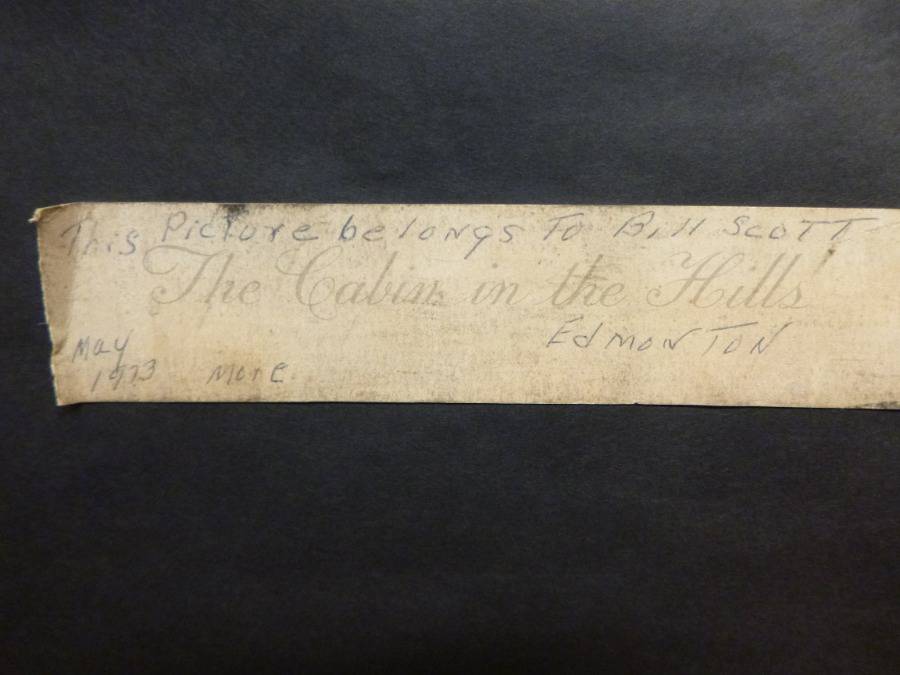 This Picture belongs To Bill SCOTT
The Cabin in the Hills
EDMONTON
May
1973 More